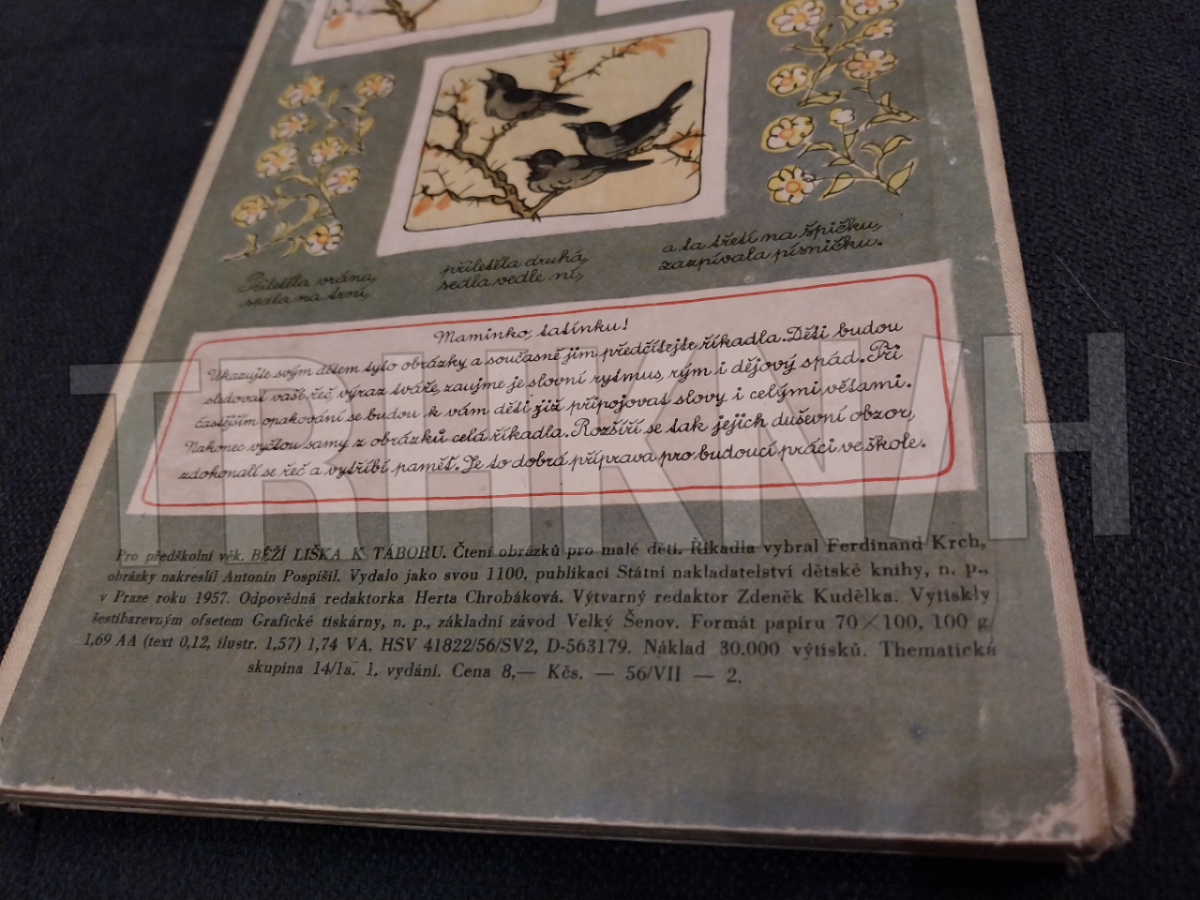 Přiletěla vrána,
sedla na trní,
přiletěla druhá,
sedla vedle ní,
a ta třetí na špičku,
zazpívala písničku.
Maminko, tatínku!
Ukazujte svým dětem tyto obrázky a současně jim předčítejte říkadla. Děti budou
sledovat vaši řeč, výraz tváře, zaujme je slovní rytmus, rým i dějový spád. Při
častějším opakování se budou k vám děti již připojovat slovy i celými větami.
Nakonec vyčtou samy z obrázků celá říkadla. Rozšíří se tak jejich duševní obzor,
zdokonalí se řeč a vytříbí paměť. Je to dobrá příprava pro budoucí práci ve škole.
Pro předškolní věk. BĚŽÍ LIŠKA K TÁBORU. Čtení obrázků pro malé děti. Říkadla vybral Ferdinand Krch,
obrázky nakreslil Antonín Pospíšil. Vydalo jako svou 1100. publikaci Státní nakladatelství dětské knihy, n. p.,
v Praze roku 1957. Odpovědná redaktorka Herta Chrobáková. Výtvarný redaktor Zdeněk Kudělka. Vytiskly
šestibarevným ofsetem Grafické tiskárny, n. p., základní závod Velký Šenov. Formát papíru 70×100, 100 g
1,69 AA (text 0,12, ilustr. 1,57) 1,74 VA. HSV 41822/56/SV2, D-563179. Náklad 30.000 výtisků. Thematická
skupina 14/1a. 1. vydání. Cena 8,— Kčs. — 56/VII — 2.